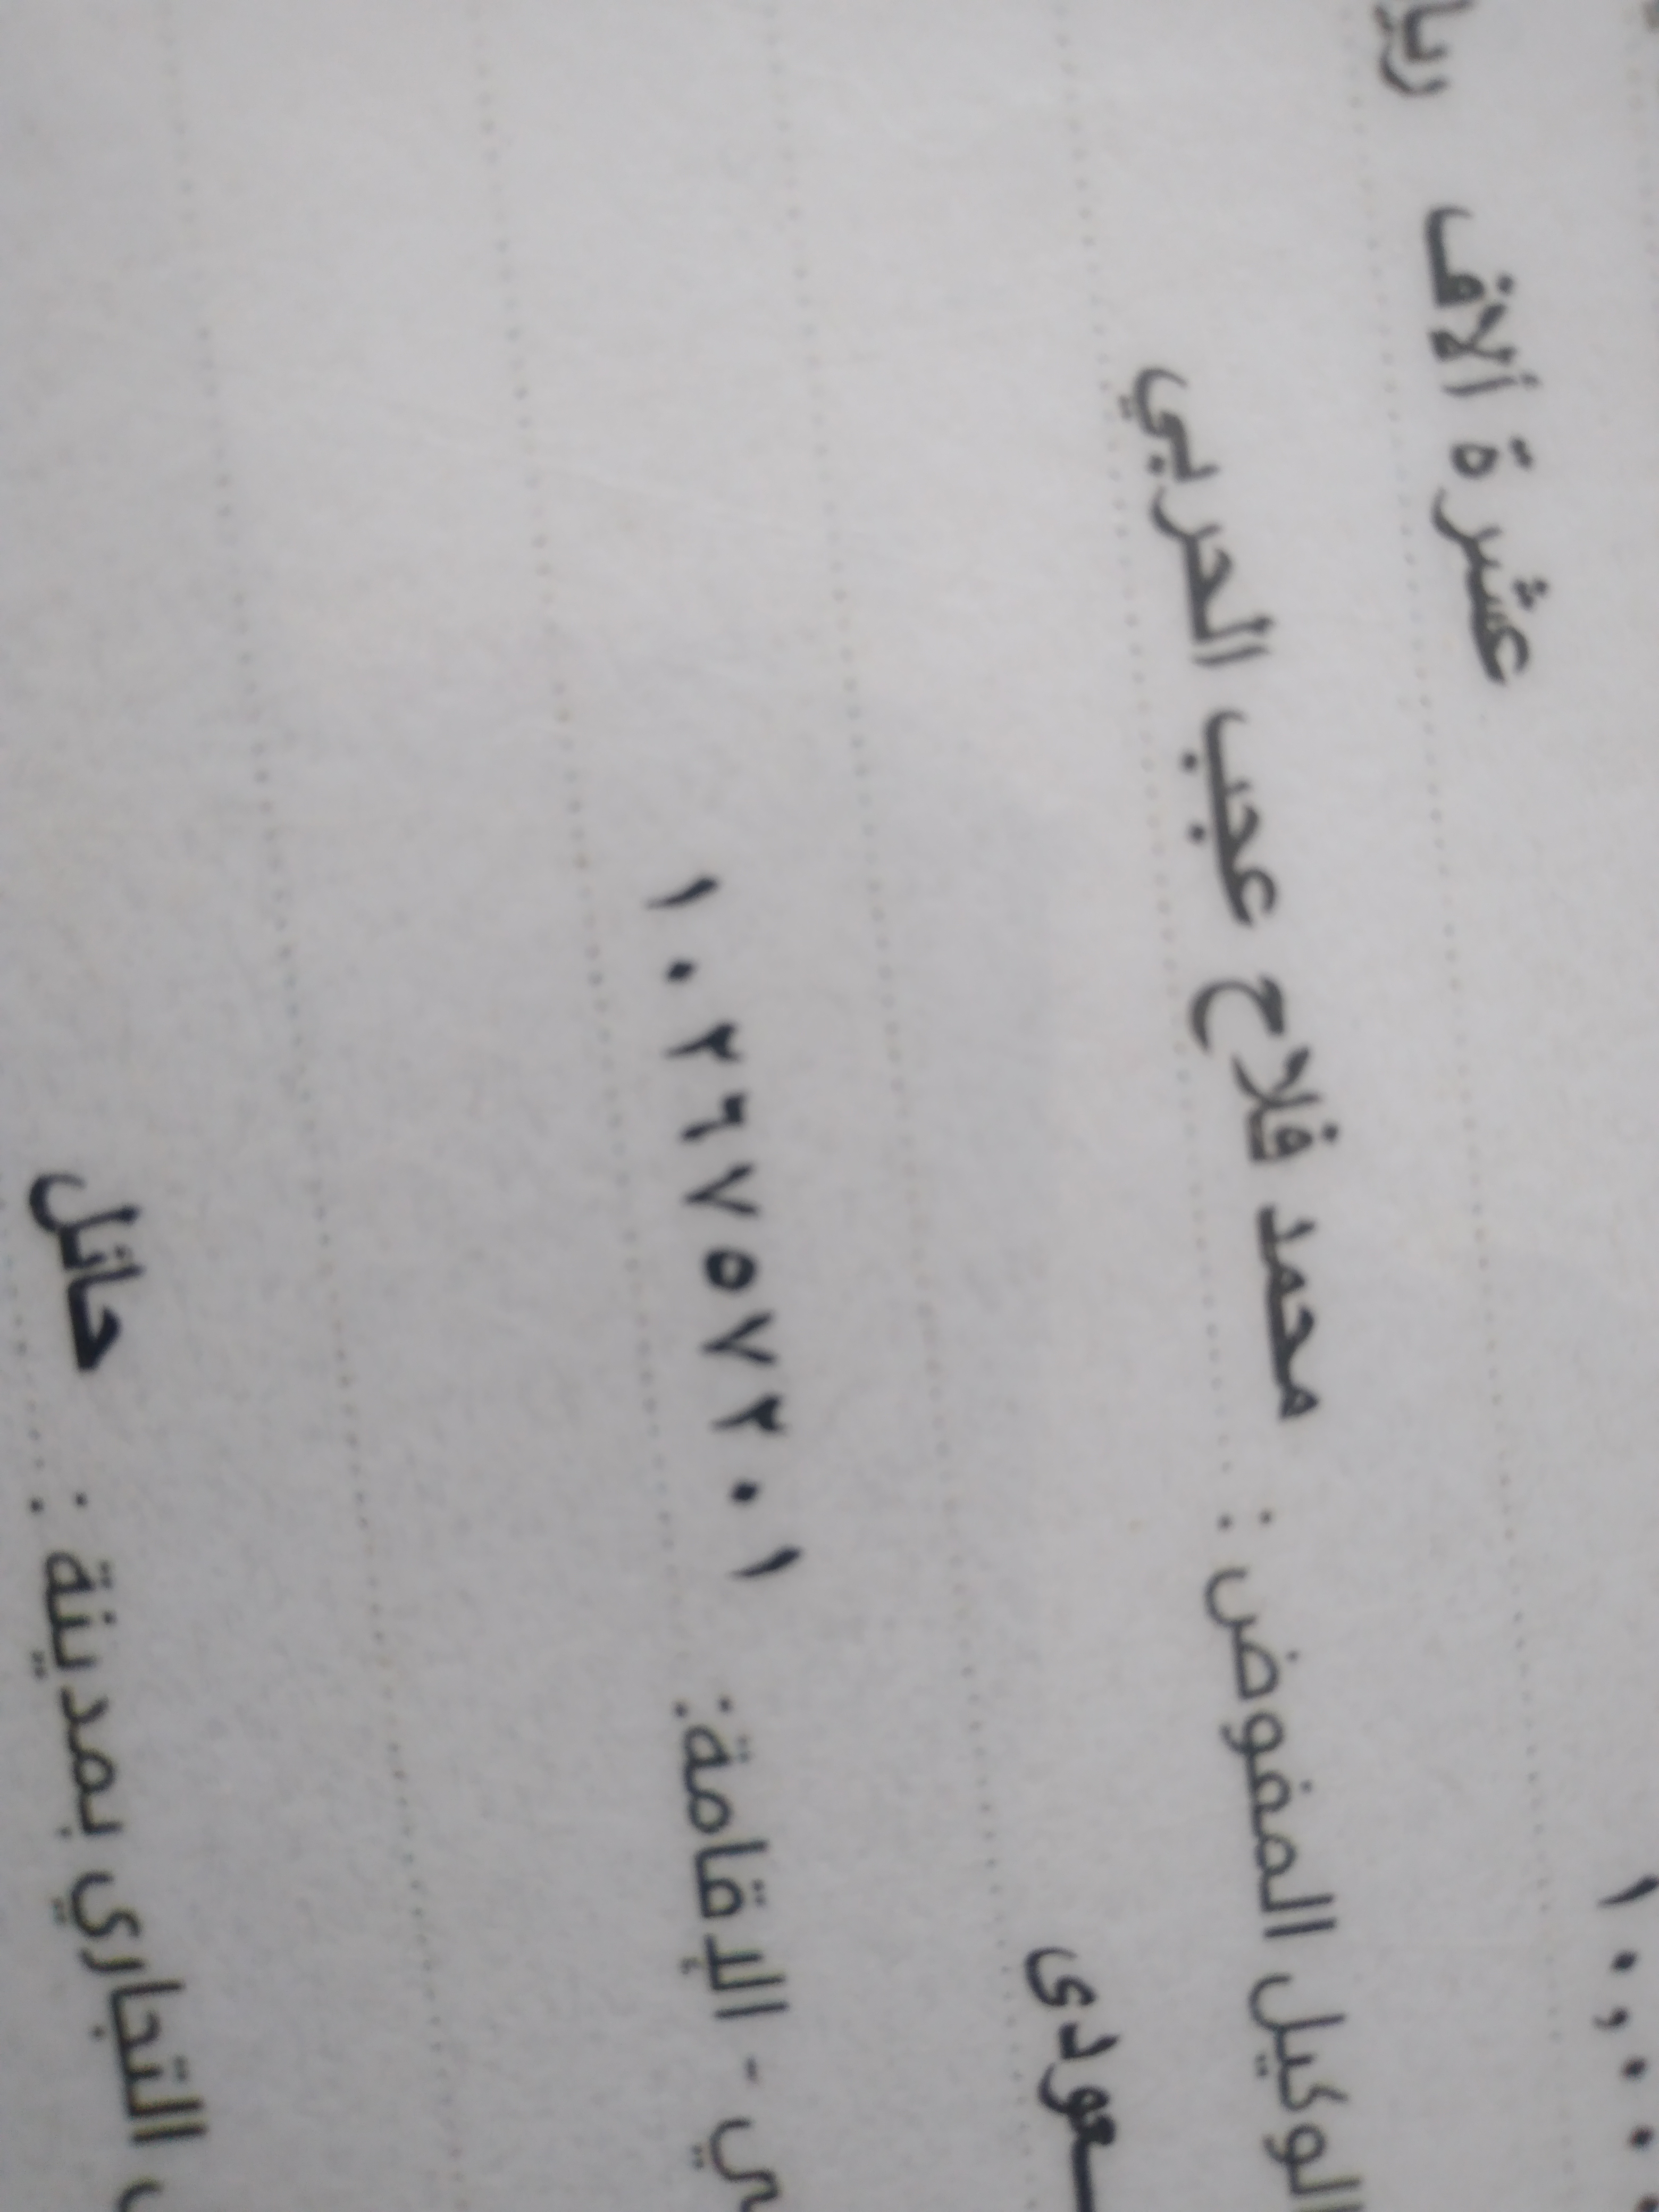 ١٠,٠٠ عشرة ألاف
الوكيل المفوض : محمد فلاح عجب الحربي
سعودى
ي - الإقامة: ١٠٢٦٧٥٧٢٠١
التجاري بمدينة : حائل